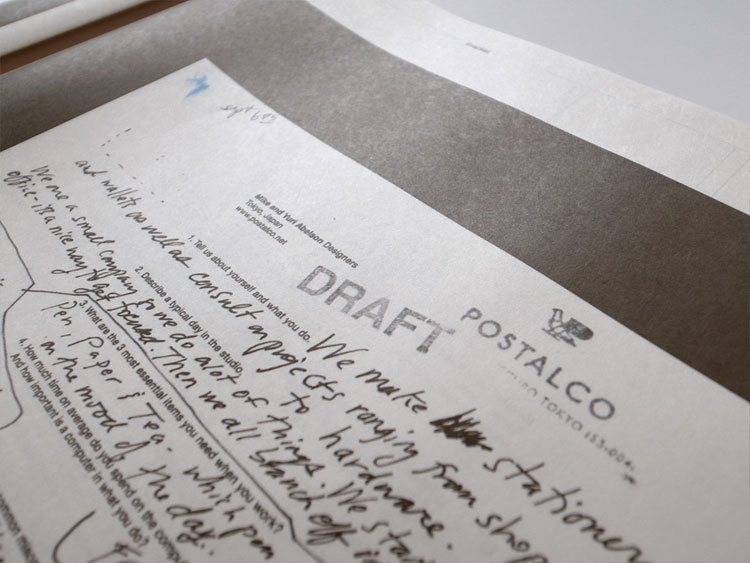 Mike and Yuri Abelson Designers
Tokyo, Japan
www.postalco.net
DRAFT
POSTALCO
TOKYO 153-004
1. Tell us about yourself and what you do.
We make stationery
and wallets as well as consult on projects ranging from shop
to hardware.
2. Describe a typical day in the studio.
We are a small company so we do a lot of things. We start
office - it's a nice way to get focused. Then we all branch off
3. What are the 3 most essential items you need when you work?
Pen, Paper & Tea. Which pen
in the mood of the day.
4. How much time on average do you spend on the comput
And how important is a computer in what you do?